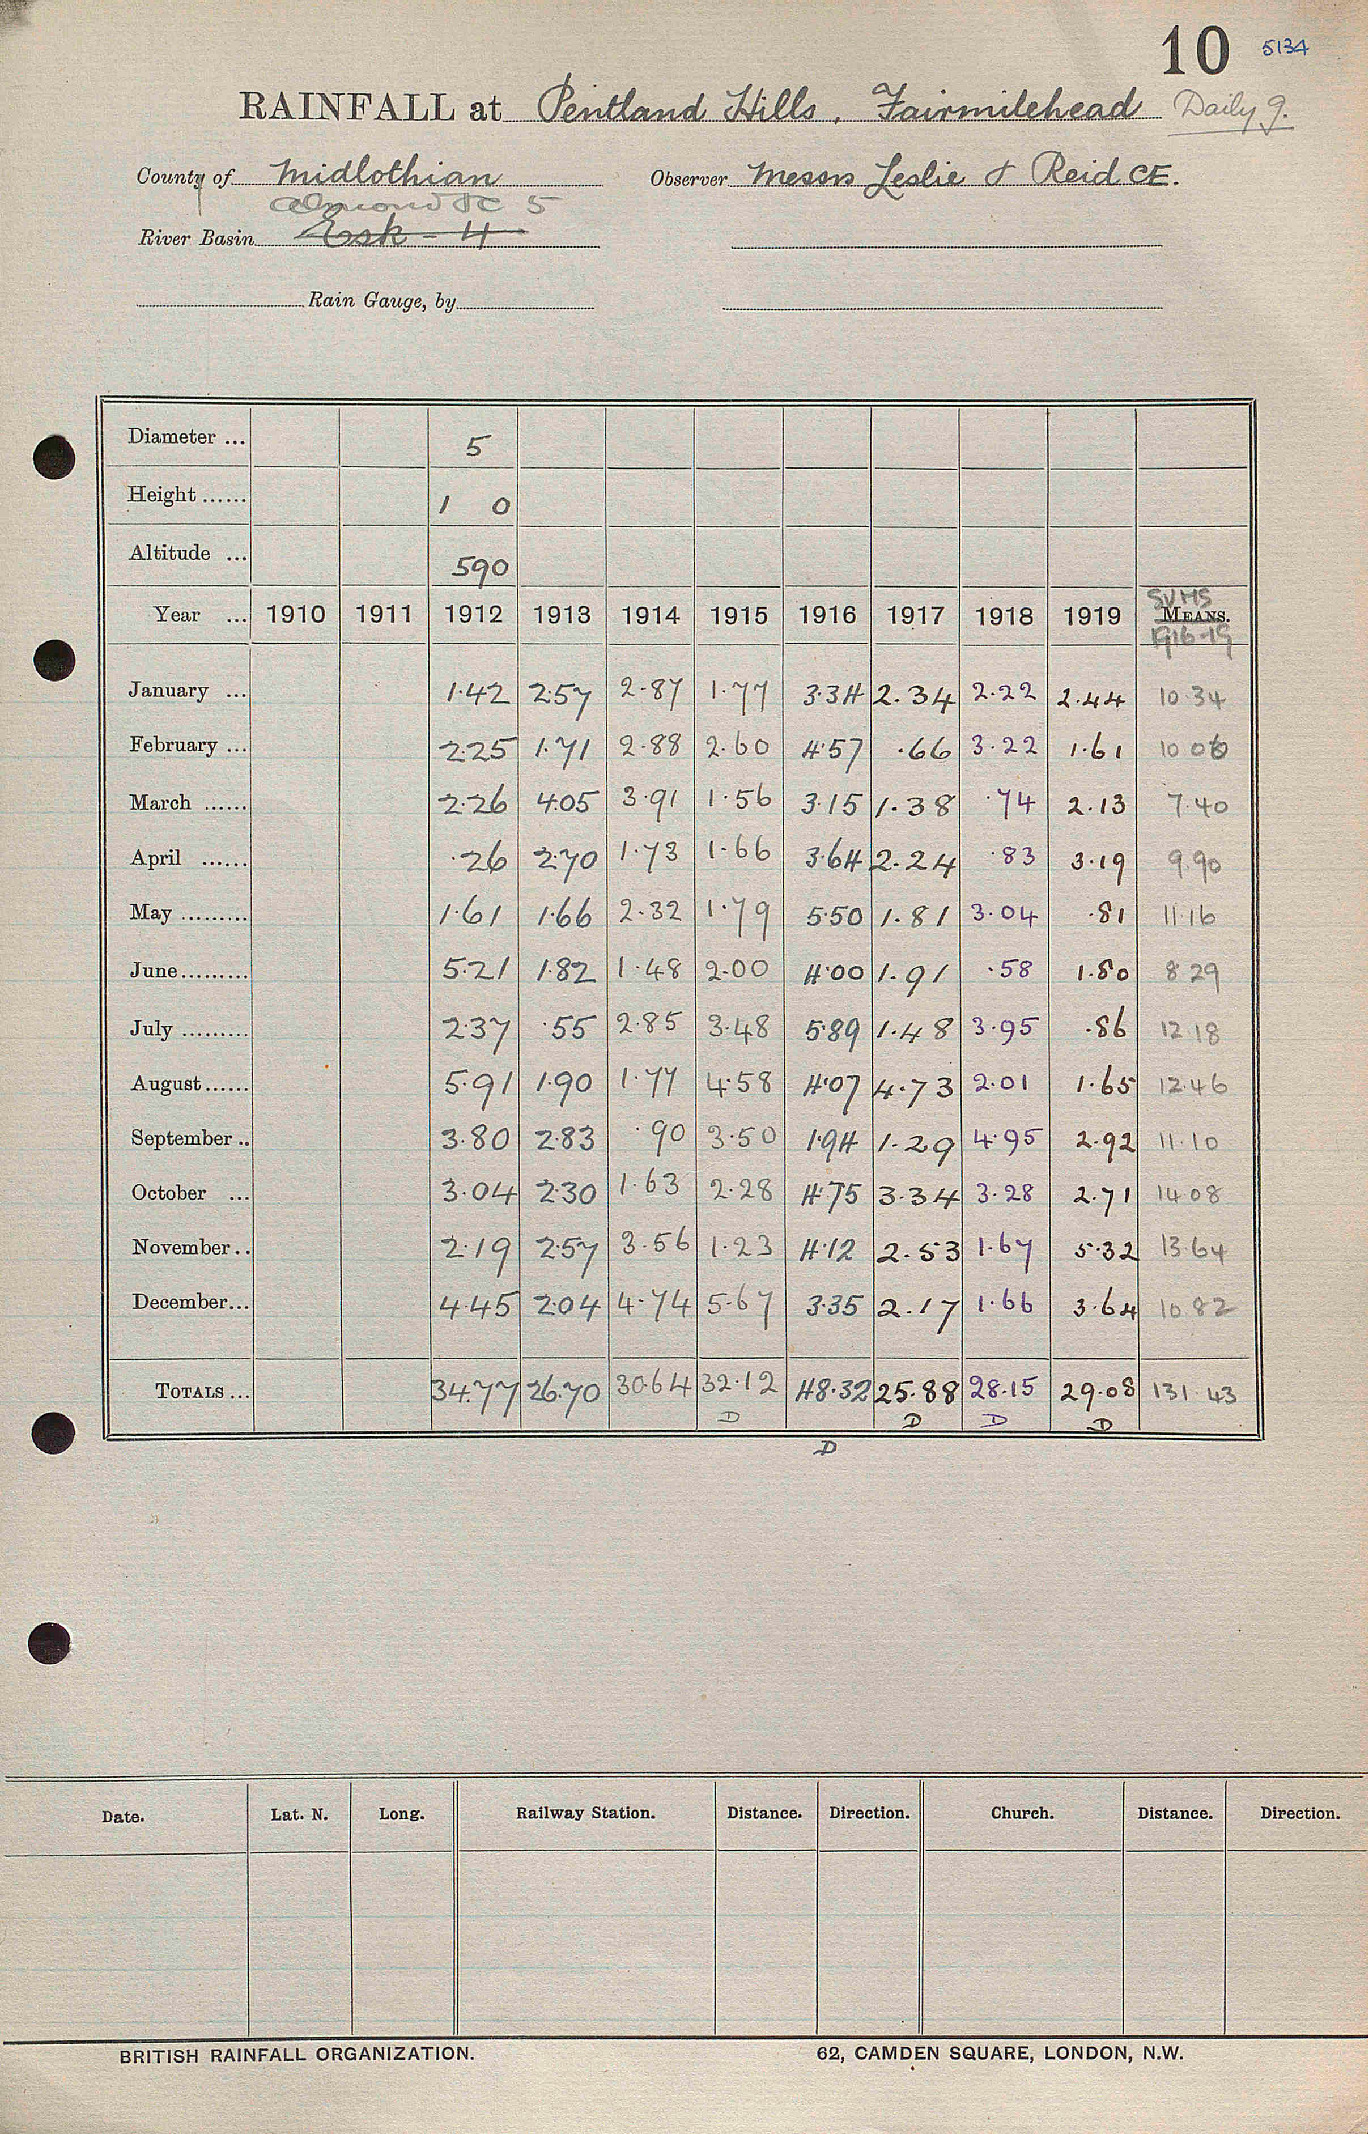 10 5134
RAINFALL at Pentland Hills, Fairmilehead Daily 9.
County of Midlothian Observer Messrs Leslie & Reid CE.
Almond &c 5
River Basin Esk - 4
Rain Gauge, by
Diameter ... 5
Height ...... 1 0
Altitude ... 590
SUMS
Year ... 1910 1911 1912 1913 1914 1915 1916 1917 1918 1919 MEANS.
1916-19
January ... 1.42 2.57 2.87 1.77 3.34 2.34 2.22 2.44 10.34
February ... 2.25 1.71 2.88 2.60 4.57 .66 3.22 1.61 10 06
March ...... 2.26 4.05 3.91 1.56 3.15 1.38 .74 2.13 7.40
April ...... .26 2.70 1.73 1.66 3.64 2.24 .83 3.19 9.90
May ......... 1.61 1.66 2.32 1.79 5.50 1.81 3.04 .81 11.16
June......... 5.21 1.82 1.48 2.00 4.00 1.91 .58 1.80 8 29
July ......... 2.37 .55 2.85 3.48 5.89 1.48 3.95 .86 12 18
August...... 5.91 1.90 1.77 4.58 4.07 4.73 2.01 1.65 12.46
September .. 3.80 2.83 .90 3.50 1.94 1.29 4.95 2.92 11.10
October ... 3.04 2.30 1.63 2.28 4.75 3.34 3.28 2.71 14 08
November .. 2.19 2.57 3.56 1.23 4.12 2.53 1.67 5.32 13.64
December... 4.45 2.04 4.74 5.67 3.35 2.17 1.66 3.64 10.82
TOTALS ... 34.77 26.70 30.64 32.12 48.32 25.88 28.15 29.08 131.43
D D D D
D
Date. Lat. N. Long. Railway Station. Distance. Direction. Church. Distance. Direction.
BRITISH RAINFALL ORGANIZATION. 62, CAMDEN SQUARE, LONDON, N.W.